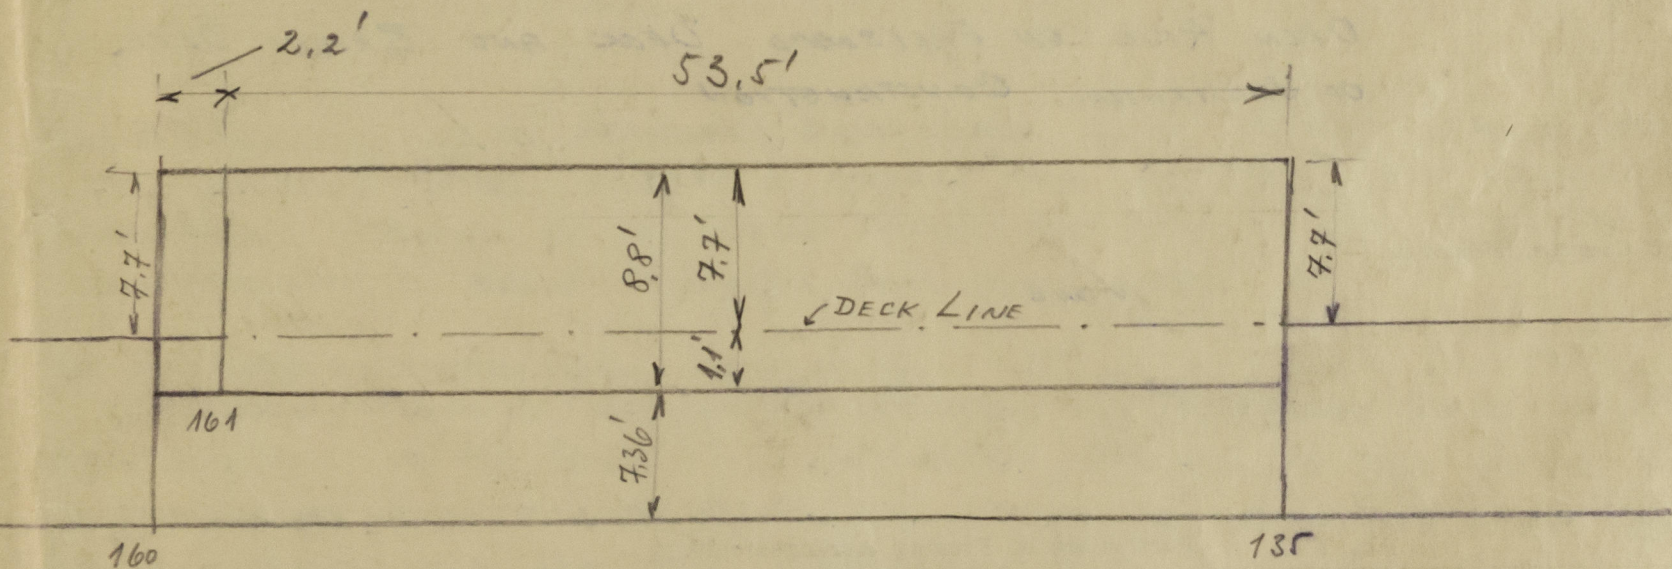 2,2'
53,5'
7,7'
8,8'
7,7'
7,7'
DECK LINE
1,1'
161
7,36'
160
135